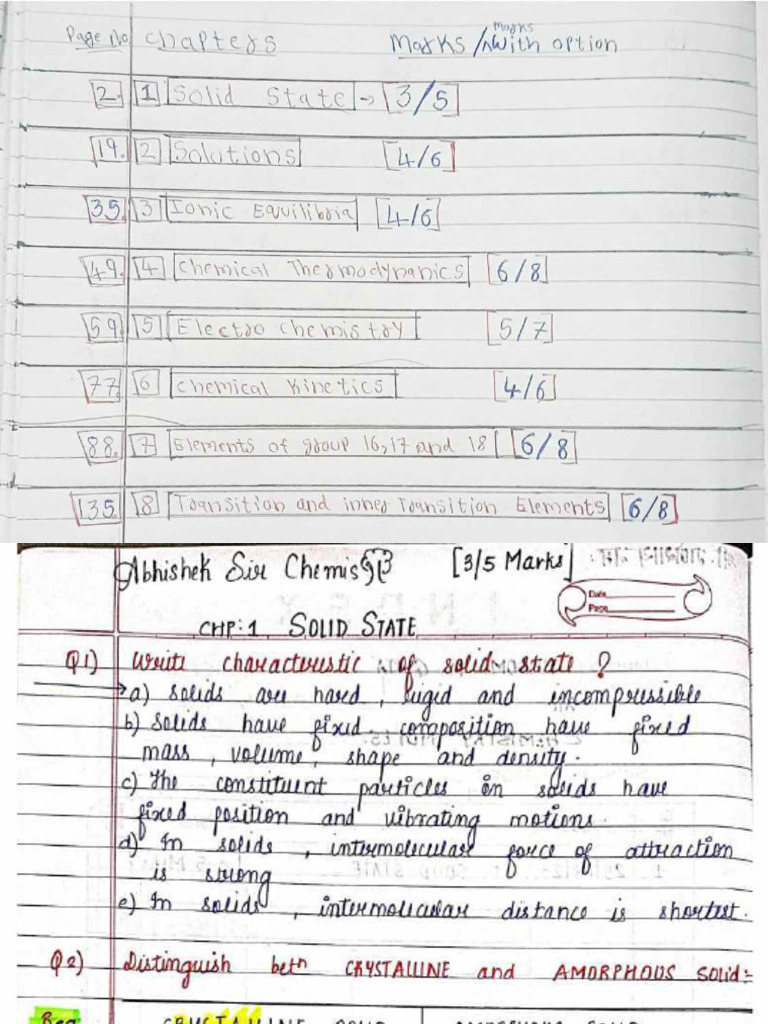 Page No Chapters Marks / Marks with option
2. 1 Solid State → [3/5]
19. 2 Solutions [4/6]
35. 3 Ionic Equilibria [4/6]
49. 4 Chemical Thermodynamics [6/8]
59. 5 Electro chemistry [5/7]
77. 6 Chemical Kinetics [4/6]
88. 7 Elements of group 16,17 and 18 [6/8]
135. 8 Transition and inner Transition Elements [6/8]
Abhishek Sir Chemistry [3/5 Marks]
Date
Page
CHP:1 SOLID STATE
Q1) Write characteristic of solid state ?
→ a) solids are hard, rugid and incompressible
b) Solids have fixed composition have fixed
mass, volume, shape and density.
c) The constituent particles in solids have
fixed position and vibrating motions.
d) In solids, intermolecular force of attraction
is strong
e) In solids, intermolecular distance is shortest.
Q2) Distinguish betn CRYSTALLINE and AMORPHOUS solid:-